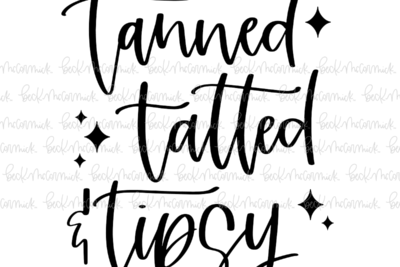 tanned
tatted
& tipsy